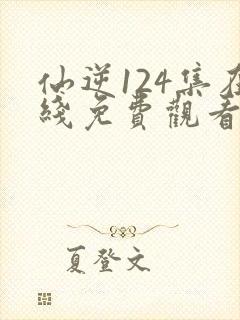 仙逆124集在
綫免費觀看
夏登文